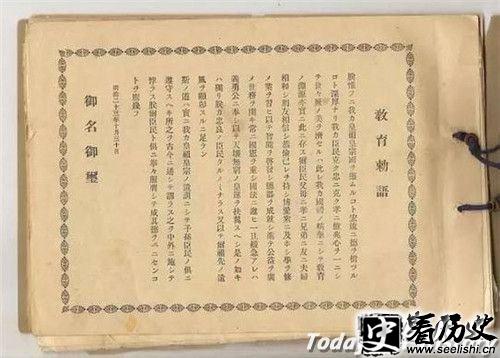 敎育勅語
朕惟フニ我カ皇祖皇宗國ヲ肇ムルコト宏遠ニ德ヲ樹ツル
コト深厚ナリ我カ臣民克ク忠ニ克ク孝ニ億兆心ヲ一ニシ
テ世々厥ノ美ヲ濟セルハ此レ我カ國體ノ精華ニシテ敎育
ノ淵源亦實ニ此ニ存ス爾臣民父母ニ孝ニ兄弟ニ友ニ夫婦
相和シ朋友相信シ恭儉己レヲ持シ博愛衆ニ及ホシ學ヲ修
メ業ヲ習ヒ以テ智能ヲ啓發シ德器ヲ成就シ進テ公益ヲ廣
メ世務ヲ開キ常ニ國憲ヲ重シ國法ニ遵ヒ一旦緩急アレハ
義勇公ニ奉シ以テ天壤無窮ノ皇運ヲ扶翼スヘシ是ノ如キ
ハ獨リ朕カ忠良ノ臣民タルノミナラス又以テ爾祖先ノ遺
風ヲ顯彰スルニ足ラン
斯ノ道ハ實ニ我カ皇祖皇宗ノ遺訓ニシテ子孫臣民ノ俱ニ
遵守スヘキ所之ヲ古今ニ通シテ謬ラス之ヲ中外ニ施シテ
悖ラス朕爾臣民ト俱ニ拳々服膺シテ咸其德ヲ一ニセンコ
トヲ庶幾フ
明治二十三年十月三十日
御名御璽
Toda
看历史
www.seelishi.cn